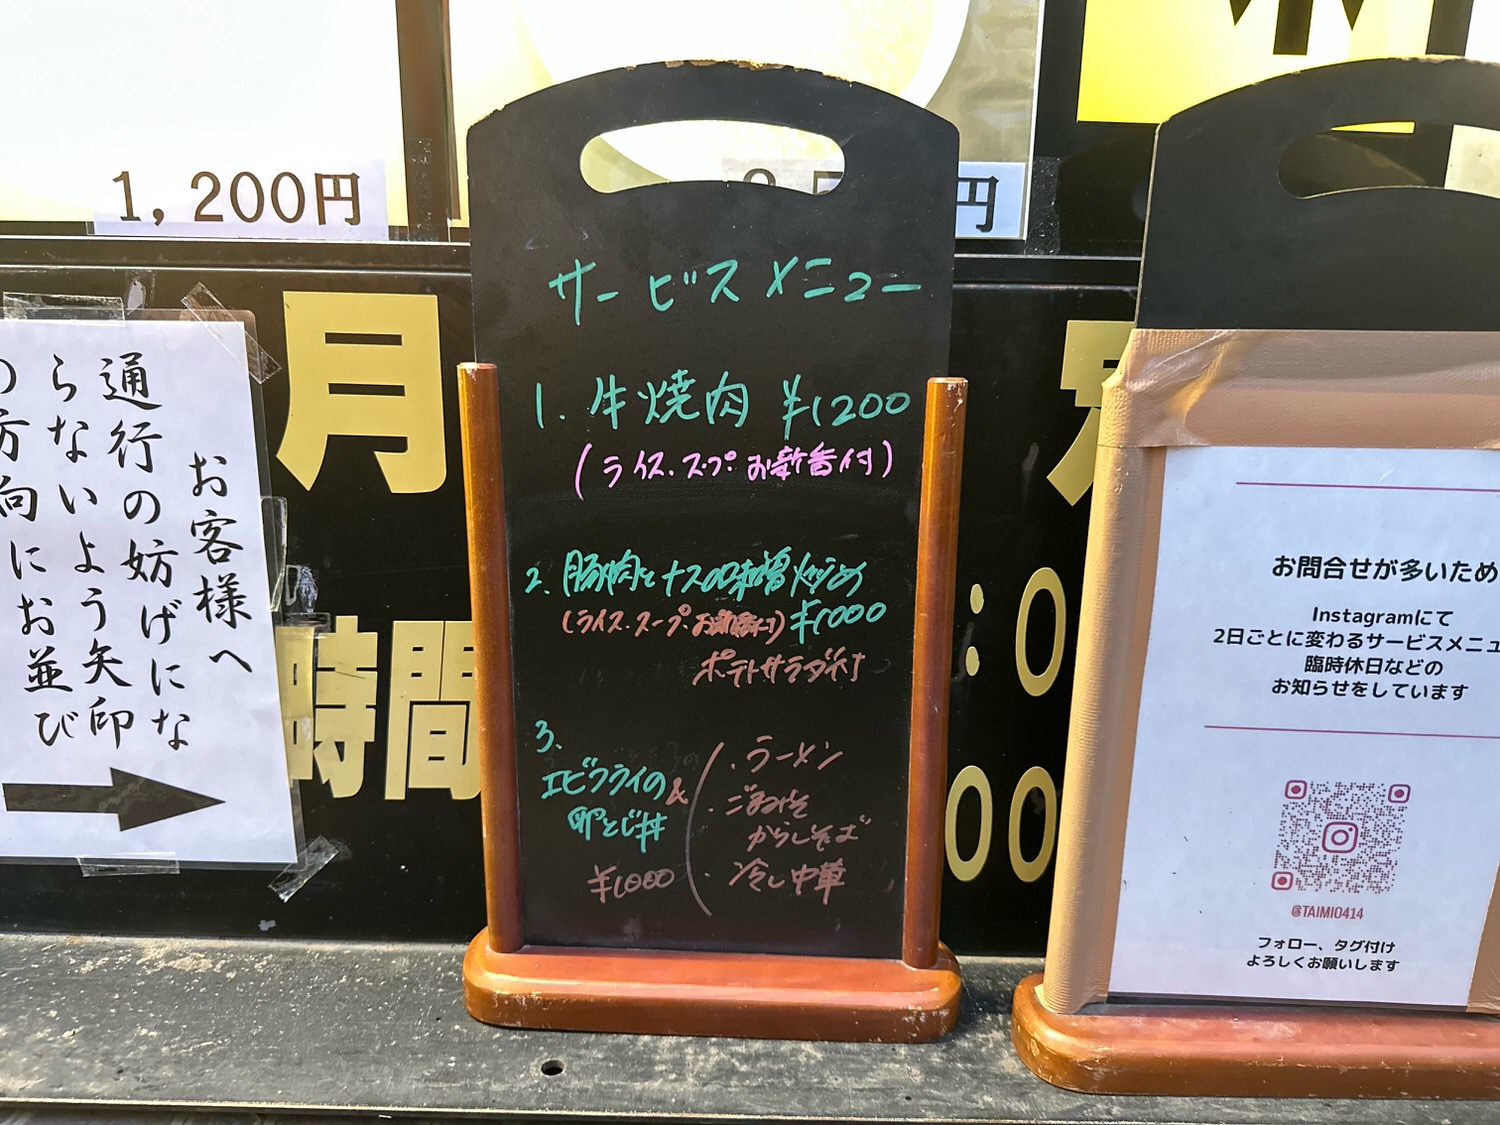 1,200円
円
お客様へ
通行の妨げにな
らないよう矢印
の方向にお並び
月
時間
:0
00
サービスメニュー
1. 牛焼肉 ¥1200
(ライス.スープ.お新香付)
2. 豚肉とナスの味噌炒め
(ライス.スープ.お新香付) ¥1000
ポテトサラダ付
3.
エビフライの
卵とじ丼
&
¥1000
・ラーメン
・ごまみそ
からしそば
・冷し中華
お問合せが多いため
Instagramにて
2日ごとに変わるサービスメニュ
臨時休日などの
お知らせをしています
@TAIMI0414
フォロー、タグ付け
よろしくお願いします